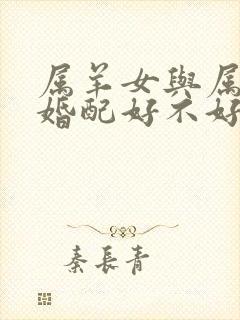 属羊女與属
婚配好不好
秦長青